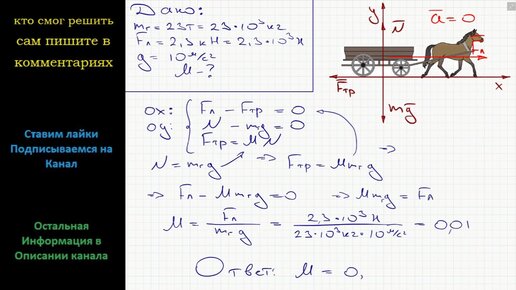 кто смог решить
сам пишите в
комментариях
Ставим лайки
Подписываемся на
Канал
Остальная
Информация в
Описании канала
Дано:
mг = 23т = 23·10³кг
Fл = 2,3 кН = 2,3·10³Н
g = 10 м/с²
μ - ?
y
N
a = 0
Fл
Fтр
x
mg
ox: Fл - Fтр = 0
oy: N - mg = 0
Fтр = μN
N = mгg => Fтр = μmгg =>
=> Fл - μmгg = 0 => μmгg = Fл
μ = Fл / mгg = 2,3·10³Н / 23·10³кг·10м/с² = 0,01
Ответ: μ = 0,